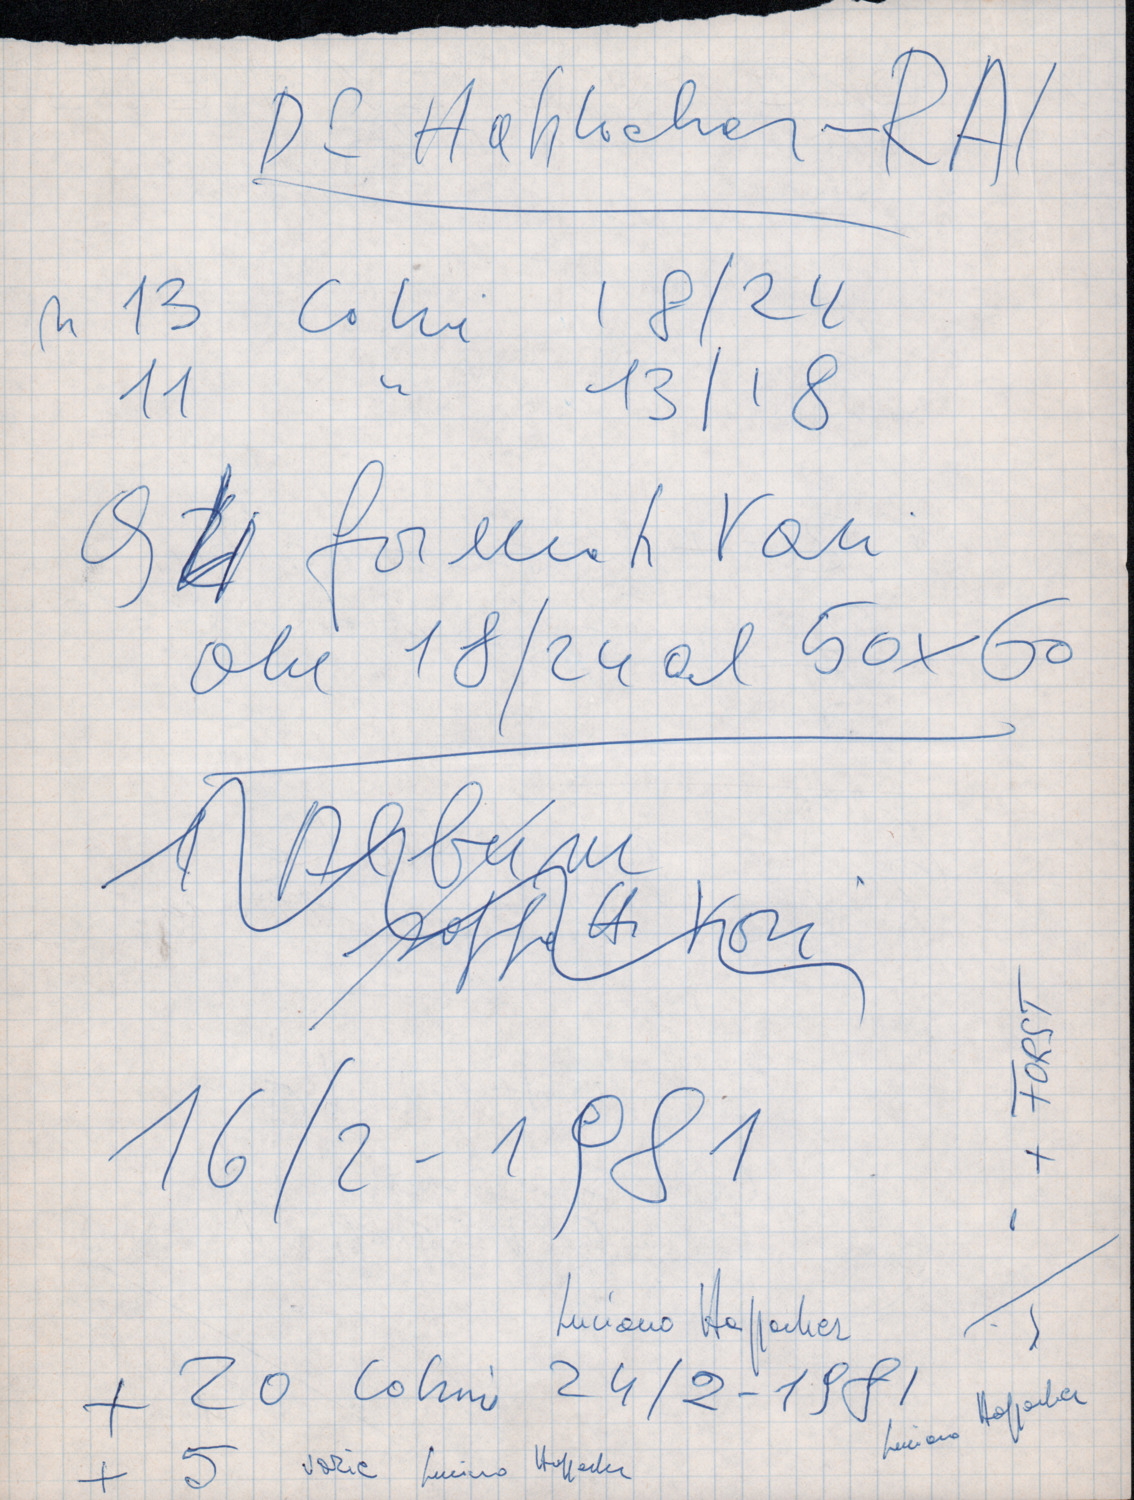 DC Happacher - RAI
n 13 Colori 18/24
11 " 13/18
9 formati Vari
dal 18/24 al 50x60
1 Album
Vari
16/2-1981
+ FORST
Luciano Happacher
+ 20 Colori 24/2-1981
Luciano Happacher
+ 5 varie Luciano Happacher